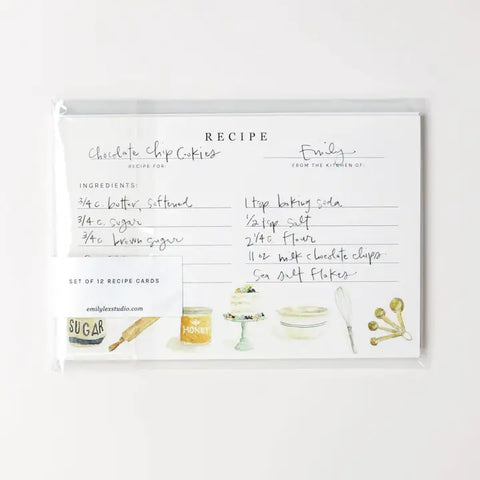 RECIPE
Chocolate Chip Cookies
Emily
RECIPE FOR:
FROM THE KITCHEN OF:
INGREDIENTS:
3/4 c. butter, softened
3/4 c. sugar
3/4 c. brown sugar
1 tsp baking soda
1/2 tsp salt
2 1/4 c. flour
11 oz milk chocolate chips
Sea salt flakes
SET OF 12 RECIPE CARDS
emilylexstudio.com
SUGAR
HONEY